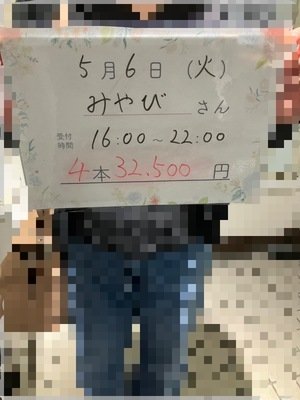 5月6日 (火)
みやび さん
受付時間 16:00~22:00
4本 32.500 円